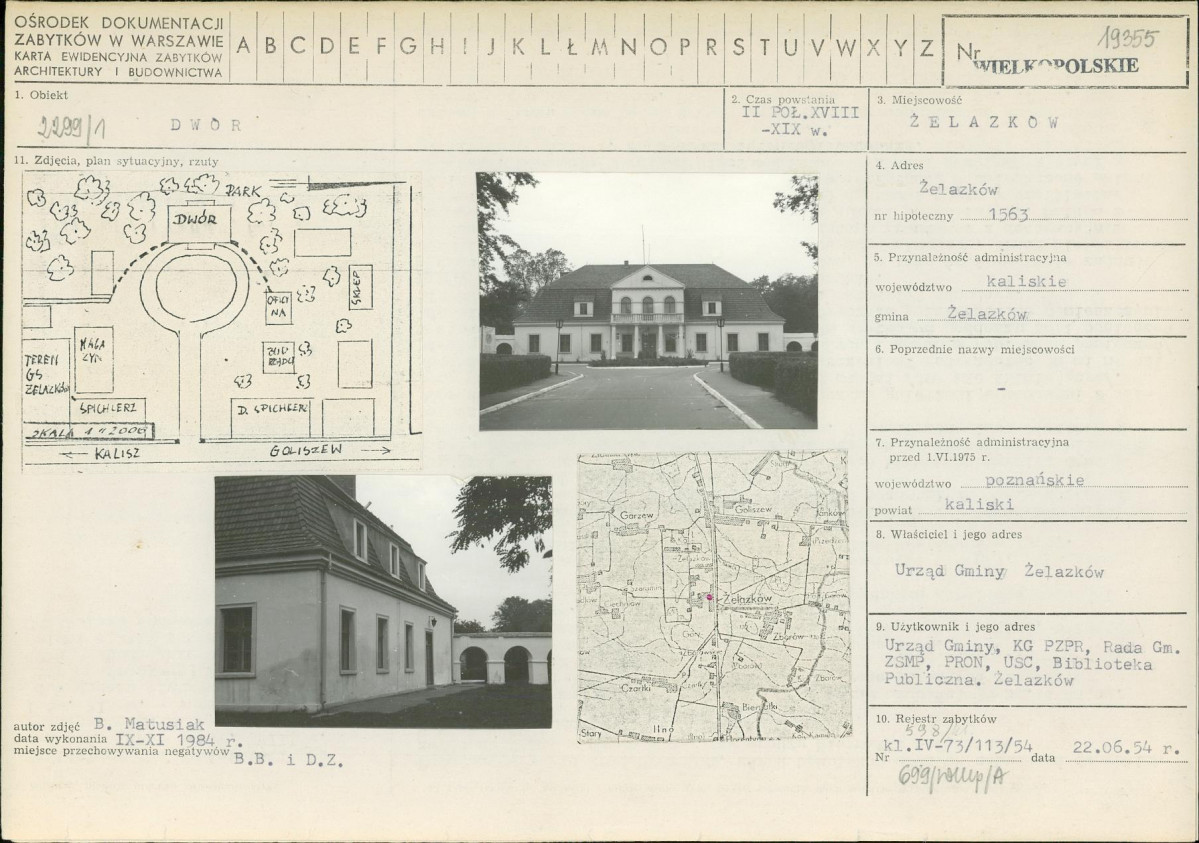 OŚRODEK DOKUMENTACJI
ZABYTKÓW W WARSZAWIE
KARTA EWIDENCYJNA ZABYTKÓW
ARCHITEKTURY I BUDOWNICTWA
A B C D E F G H I J K L Ł M N O P R S T U V W X Y Z
Nr 19355
WIELKOPOLSKIE
1. Obiekt
2299/1 DWÓR
2. Czas powstania
II POŁ.XVIII
-XIX w.
3. Miejscowość
ŻELAZKÓW
11. Zdjęcia, plan sytuacyjny, rzuty
PARK
DWÓR
OFICY
NA
SKLEP
MAGA
ZYN
TEREN
GS
ŻELAZKÓW
SPICHLERZ
D. SPICHLERZ
SKALA 1:2000
KALISZ
GOLISZEW
4. Adres
Żelazków
nr hipoteczny 1563
5. Przynależność administracyjna
województwo kaliskie
gmina Żelazków
6. Poprzednie nazwy miejscowości
-
7. Przynależność administracyjna
przed 1.VI.1975 r.
województwo poznańskie
powiat kaliski
8. Właściciel i jego adres
Urząd Gminy Żelazków
9. Użytkownik i jego adres
Urząd Gminy, KG PZPR, Rada Gm.
ZSMP, PRON, USC, Biblioteka
Publiczna. Żelazków
10. Rejestr zabytków
kl.IV-73/113/54
Nr data 22.06.54 r.
699/Wlkp/A
Garzew
Goliszew
Żelazków
Góry
Zborów
Czartki
Biernatki
Ilno
Stary
autor zdjęć B. Matusiak
data wykonania IX-XI 1984 r.
miejsce przechowywania negatywów B.B. i D.Z.